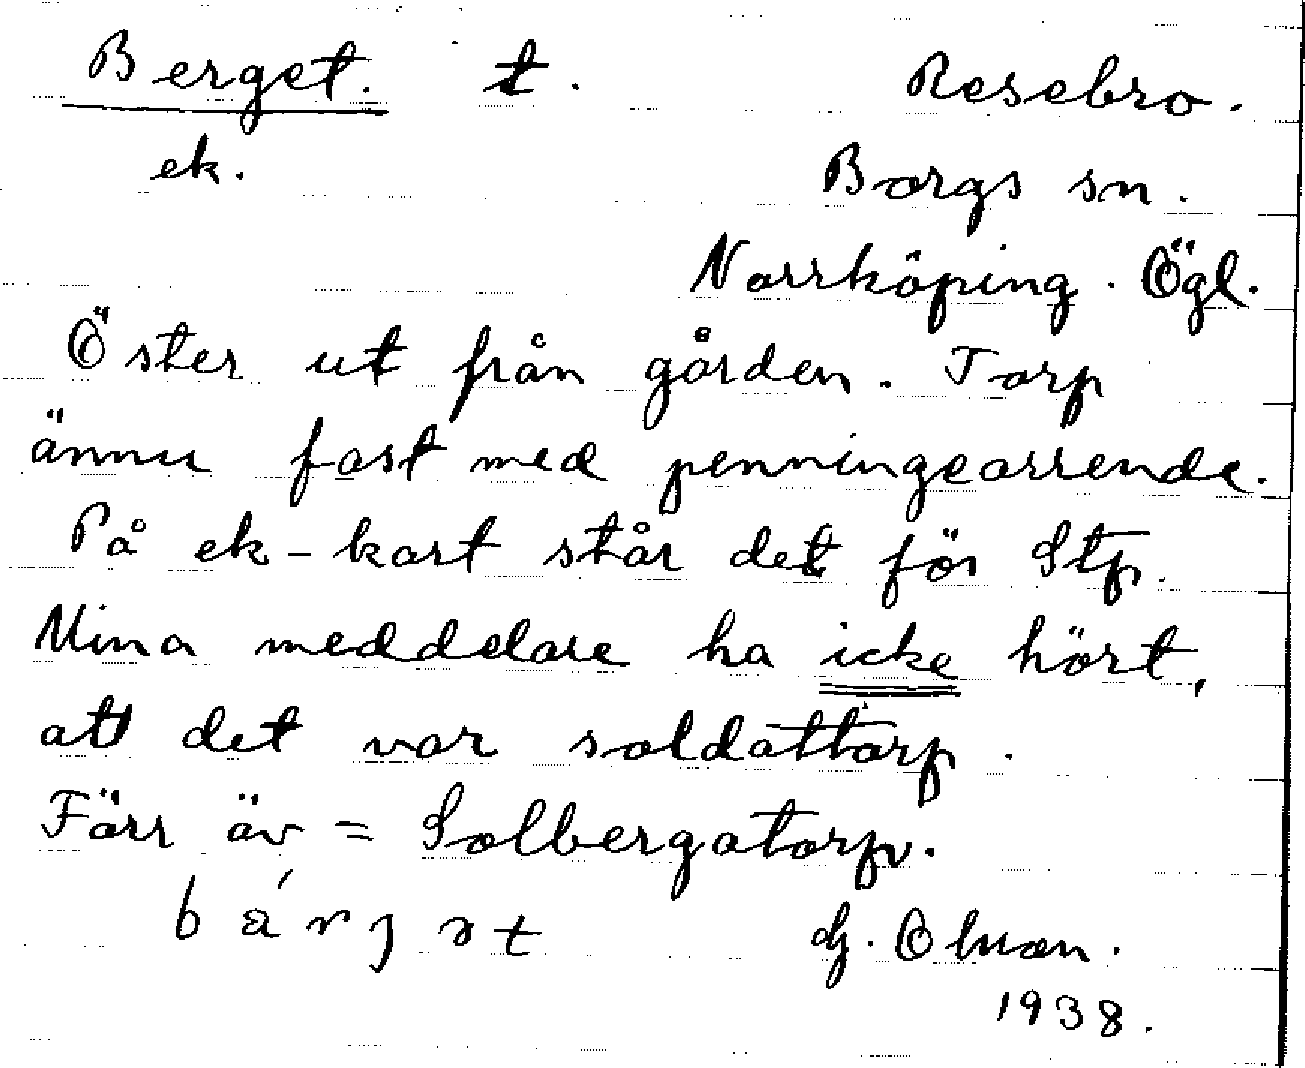 Berget. t. Resebro.
ek. Borgs sn.
Norrköping. Ögl.
Öster ut från gården. Torp
ännu fast med penningearrende.
På ek-kart står det för Stp.
Mina meddelare ha icke hört,
att det var soldattorp.
Förr äv = Solbergatorp.
1938.